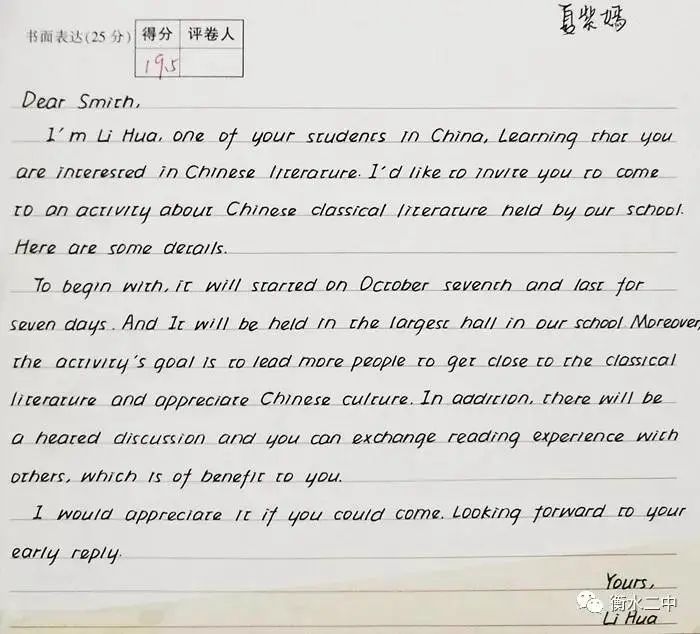 夏紫嫣
书面表达(25分) 得分 评卷人
19.5
Dear Smith,
I'm Li Hua, one of your students in China, Learning that you
are interested in Chinese literature. I'd like to invite you to come
to an activity about Chinese classical literature held by our school.
Here are some details.
To begin with, it will started on October seventh and last for
seven days. And It will be held in the largest hall in our school Moreover,
the activity's goal is to lead more people to get close to the classical
literature and appreciate Chinese culture. In addition, there will be
a heated discussion and you can exchange reading experience with
others, which is of benefit to you.
I would appreciate it if you could come. Looking forward to your
early reply.
Yours,
Li Hua
衡水二中